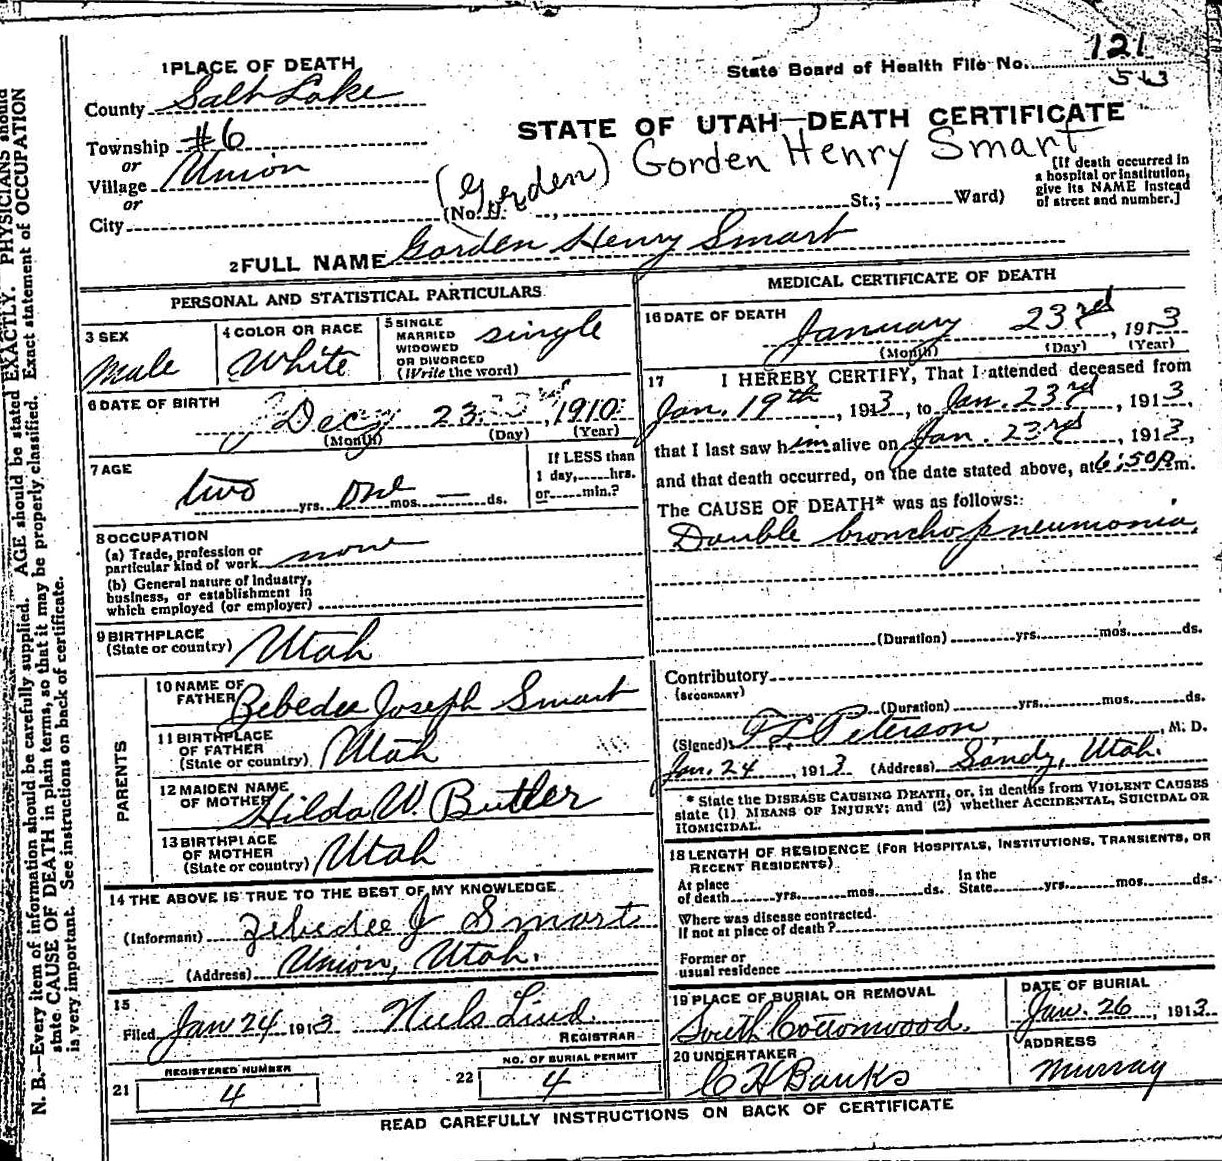 1 PLACE OF DEATH
State Board of Health File No. 121
543
County Salt Lake
STATE OF UTAH—DEATH CERTIFICATE
Township #6
or
Village Union
or
City
(Gorden) Gorden Henry Smart
(No. St.; Ward)
[If death occurred in
a hospital or institution,
give its NAME instead
of street and number.]
2 FULL NAME Gorden Henry Smart
PERSONAL AND STATISTICAL PARTICULARS
3 SEX
Male
4 COLOR OR RACE
White
5 SINGLE
MARRIED
WIDOWED
OR DIVORCED
(Write the word)
single
6 DATE OF BIRTH
Dec 23 1910
(Month) (Day) (Year)
7 AGE
two yrs. one mos. — ds.
If LESS than
1 day, hrs.
or min.?
8 OCCUPATION
(a) Trade, profession or
particular kind of work none
(b) General nature of industry,
business, or establishment in
which employed (or employer)
9 BIRTHPLACE
(State or country) Utah
PARENTS
10 NAME OF
FATHER Zebedee Joseph Smart
11 BIRTHPLACE
OF FATHER
(State or country) Utah
12 MAIDEN NAME
OF MOTHER Hilda W. Butler
13 BIRTHPLACE
OF MOTHER
(State or country) Utah
14 THE ABOVE IS TRUE TO THE BEST OF MY KNOWLEDGE
(Informant) Zebedee J Smart
(Address) Union, Utah.
15
Filed Jan 24 1913 Niels Lind.
REGISTRAR
REGISTERED NUMBER
21 4
NO. OF BURIAL PERMIT
22 4
MEDICAL CERTIFICATE OF DEATH
16 DATE OF DEATH
January 23rd, 1913
(Month) (Day) (Year)
17 I HEREBY CERTIFY, That I attended deceased from
Jan. 19th, 1913, to Jan. 23rd, 1913,
that I last saw him alive on Jan. 23rd, 1913,
and that death occurred, on the date stated above, at 6:50 p m.
The CAUSE OF DEATH* was as follows:
Double bronchopneumonia.
(Duration) yrs. mos. ds.
Contributory
(SECONDARY)
(Duration) yrs. mos. ds.
(Signed) F L Peterson, M. D.
Jan. 24, 1913 (Address) Sandy, Utah.
* State the DISEASE CAUSING DEATH, or, in deaths from VIOLENT CAUSES
state (1) MEANS OF INJURY; and (2) whether ACCIDENTAL, SUICIDAL OR
HOMICIDAL.
18 LENGTH OF RESIDENCE (FOR HOSPITALS, INSTITUTIONS, TRANSIENTS, OR
RECENT RESIDENTS)
At place
of death yrs. mos. ds.
In the
State yrs. mos. ds.
Where was disease contracted.
If not at place of death?
Former or
usual residence
19 PLACE OF BURIAL OR REMOVAL
South Cottonwood.
DATE OF BURIAL
Jan. 26, 1913
20 UNDERTAKER
C H Banks
ADDRESS
Murray
READ CAREFULLY INSTRUCTIONS ON BACK OF CERTIFICATE
N. B.—Every item of information should be carefully supplied. AGE should be stated EXACTLY. PHYSICIANS should
state CAUSE OF DEATH in plain terms, so that it may be properly classified. Exact statement of OCCUPATION
is very important. See instructions on back of certificate.